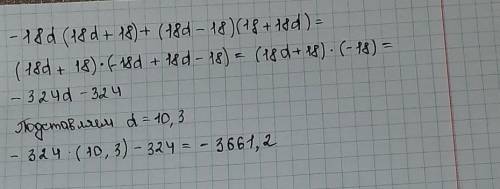 -18d (18d + 18) + (18d - 18)(18 + 18d) =
(18d + 18)·(-18d + 18d - 18) = (18d + 18) · (-18) =
- 324d - 324
Подставляем d = 10,3
- 324 · (10,3) - 324 = - 3661,2